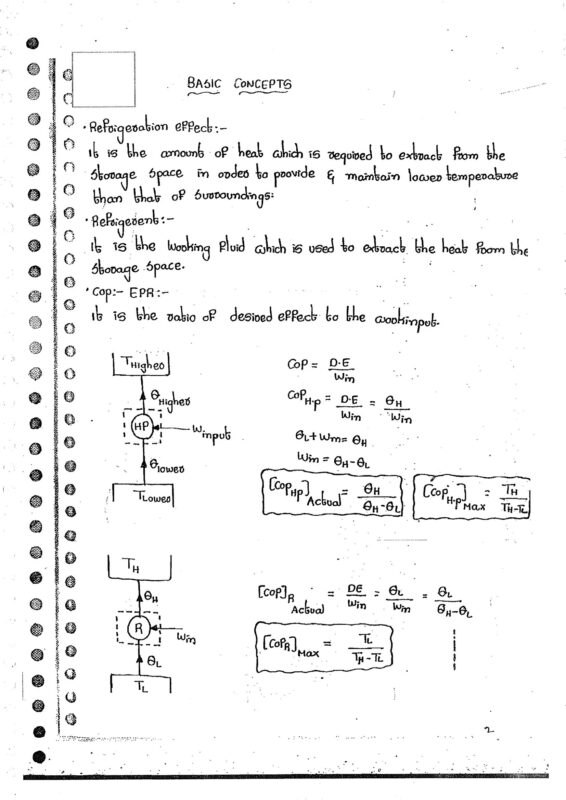 BASIC CONCEPTS
• Refrigeration effect:-
It is the amount of heat which is required to extract from the
storage space in order to provide & maintain lower temperature
than that of surroundings:
• Refrigerent:-
It is the working fluid which is used to extract the heat from the
storage space.
• Cop:- EPR:-
It is the ratio of desired effect to the workinput.
T_Higher
θ_Higher
HP
W_input
θ_lower
T_Lower
COP = D.E / Win
COP_H.P = D.E / Win = θ_H / Win
θ_L + Win = θ_H
Win = θ_H - θ_L
[COP_HP]_Actual = θ_H / (θ_H - θ_L)
[COP_H.P]_Max = T_H / (T_H - T_L)
T_H
θ_H
R
Win
θ_L
T_L
[COP]_R Actual = DE / Win = θ_L / Win = θ_L / (θ_H - θ_L)
[COP_R]_Max = T_L / (T_H - T_L)
2